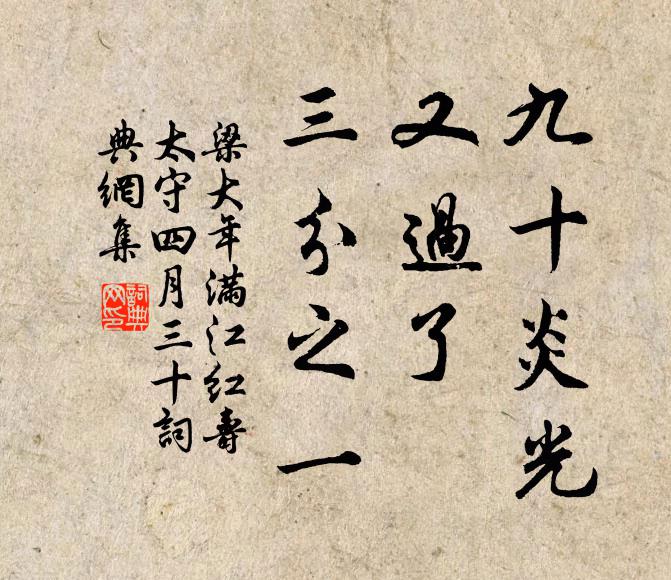 九十炎光
又過了
三分之一
梁大年滿江紅壽
太守四月三十詞
典網集
詞典
网印